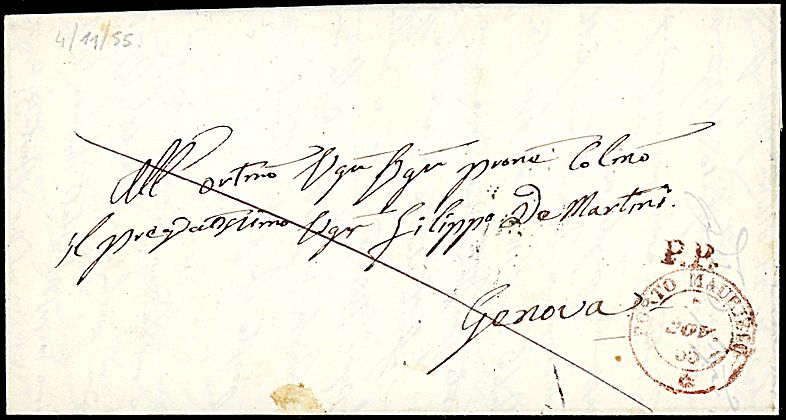 4/11/55.
All' ortmo Sgr Sgr prone Colmo
il pregiatissimo Sgr Filippo De Martini.
Genova
P.P.
PORTO MAURIZIO
NOV.
55